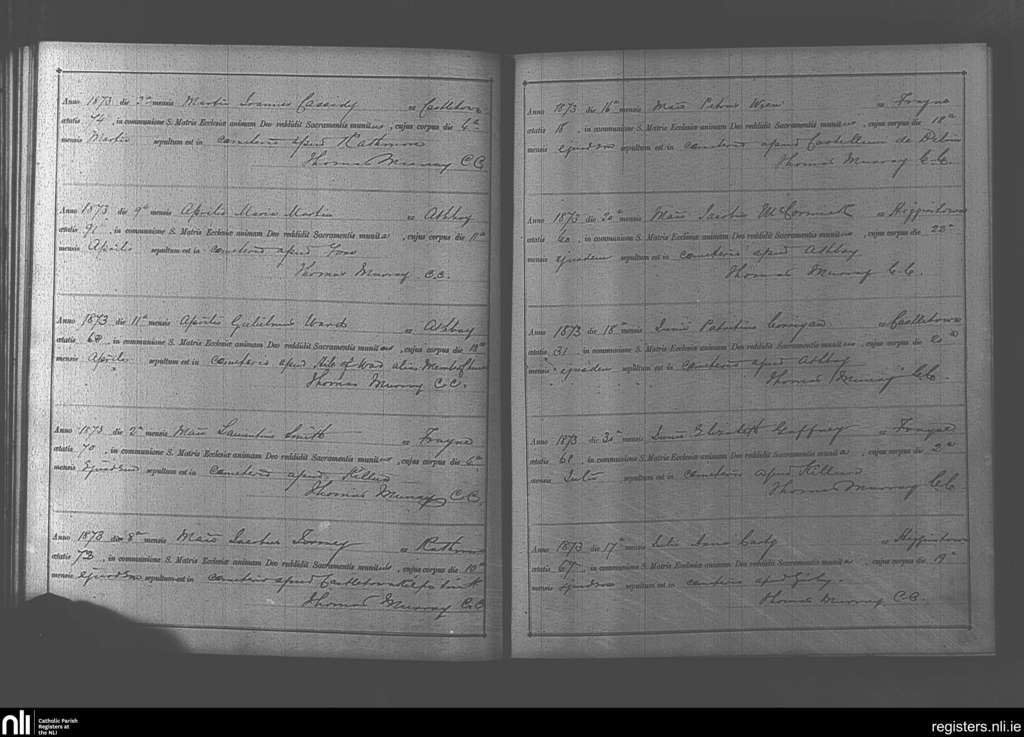 Anno 1873 die 2ª mensis Martii Joannes Cassidy ex Castletown
ætatis 74, in communione S. Matris Ecclesiæ animam Deo reddidit Sacramentis munitus, cujus corpus die 4ª
mensis Martii sepultum est in cœmeterio apud Rathmore
Thomas Murray C.C.
Anno 1873 die 9ª mensis Aprilis Maria Martin ex Athboy
ætatis 91, in communione S. Matris Ecclesiæ animam Deo reddidit Sacramentis munita, cujus corpus die 11ª
mensis Aprilis sepultum est in cœmeterio apud
Thomas Murray C.C.
Anno 1873 die 11ª mensis Aprilis Gulielmus Ward ex Athboy
ætatis 60, in communione S. Matris Ecclesiæ animam Deo reddidit Sacramentis munitus, cujus corpus die 13ª
mensis Aprilis sepultum est in cœmeterio apud Hill of Ward alias
Thomas Murray C.C.
Anno 1873 die 2ª mensis Maii Laurentius Smith ex Frayne
ætatis 70, in communione S. Matris Ecclesiæ animam Deo reddidit Sacramentis munitus, cujus corpus die 4ª
mensis ejusdem sepultum est in cœmeterio apud
Thomas Murray C.C.
Anno 1873 die 8ª mensis Maii Jacobus ex Rathmore
ætatis 73, in communione S. Matris Ecclesiæ animam Deo reddidit Sacramentis munitus, cujus corpus die 10ª
mensis ejusdem sepultum est in cœmeterio apud Castletown
Thomas Murray C.C.
Anno 1873 die 16ª mensis Maii Petrus ex Frayne
ætatis 18, in communione S. Matris Ecclesiæ animam Deo reddidit Sacramentis munitus, cujus corpus die 18ª
mensis ejusdem sepultum est in cœmeterio apud Castellum de Delvin
Thomas Murray C.C.
Anno 1873 die 20ª mensis Maii Jacobus McCormick ex Higginstown
ætatis 60, in communione S. Matris Ecclesiæ animam Deo reddidit Sacramentis munitus, cujus corpus die 22ª
mensis ejusdem sepultum est in cœmeterio apud Athboy
Thomas Murray C.C.
Anno 1873 die 18ª mensis Junii Patritius Corrigan ex Castletown
ætatis 31, in communione S. Matris Ecclesiæ animam Deo reddidit Sacramentis munitus, cujus corpus die 20ª
mensis ejusdem sepultum est in cœmeterio apud Athboy
Thomas Murray C.C.
Anno 1873 die 30ª mensis Junii Elizabeth Gaffney ex Frayne
ætatis 68, in communione S. Matris Ecclesiæ animam Deo reddidit Sacramentis munita, cujus corpus die 2ª
mensis Julii sepultum est in cœmeterio apud
Thomas Murray C.C.
Anno 1873 die 17ª mensis Julii Anna ex Higginstown
ætatis 67, in communione S. Matris Ecclesiæ animam Deo reddidit Sacramentis munita, cujus corpus die 19ª
mensis ejusdem sepultum est in cœmeterio apud
Thomas Murray C.C.
nli Catholic Parish Registers at the NLI
registers.nli.ie